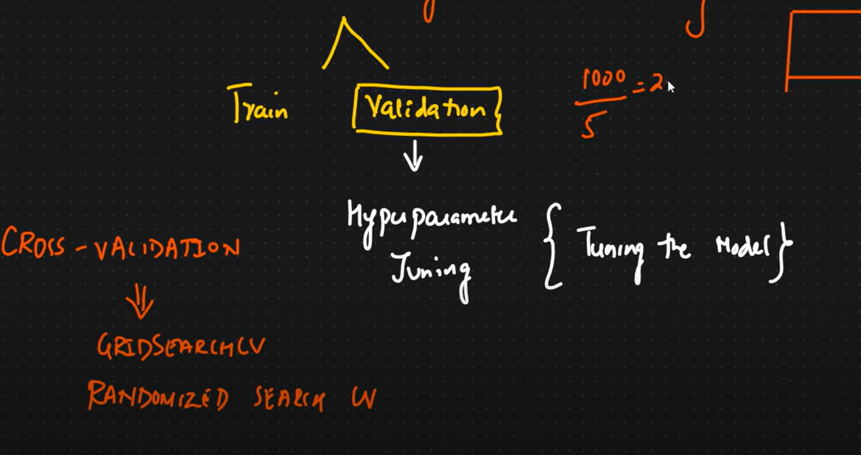 Train
Validation
1000
5
= 2
Hyperparameter
Tuning
{ Tuning the Model }
CROSS - VALIDATION
GRIDSEARCHCV
RANDOMIZED SEARCH CV